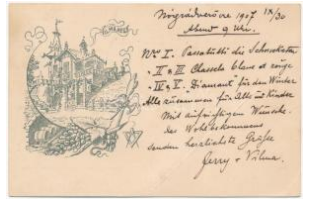 Nógrádverőce 1907 IX/30
Abend 9 Uhr.
No I. Passatutti der Schonkatten
" II " III Chasselas blanc et rouge
" IV " V. "Diamant" für den Winter
Alles zusammen für Alle u Kinder
Mit aufrichtigem Wunsche
des Wohlbekommens
senden herzlichste Grüße
Jerry u Vilma